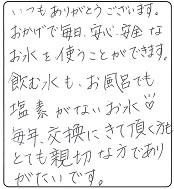 いつもありがとうございます。
おかげで毎日、安心・安全な
お水を使うことができます。
飲む水も、お風呂でも
塩素がないお水♡
毎年、交換にきて頂く方も
とても親切な方であり
がたいです。